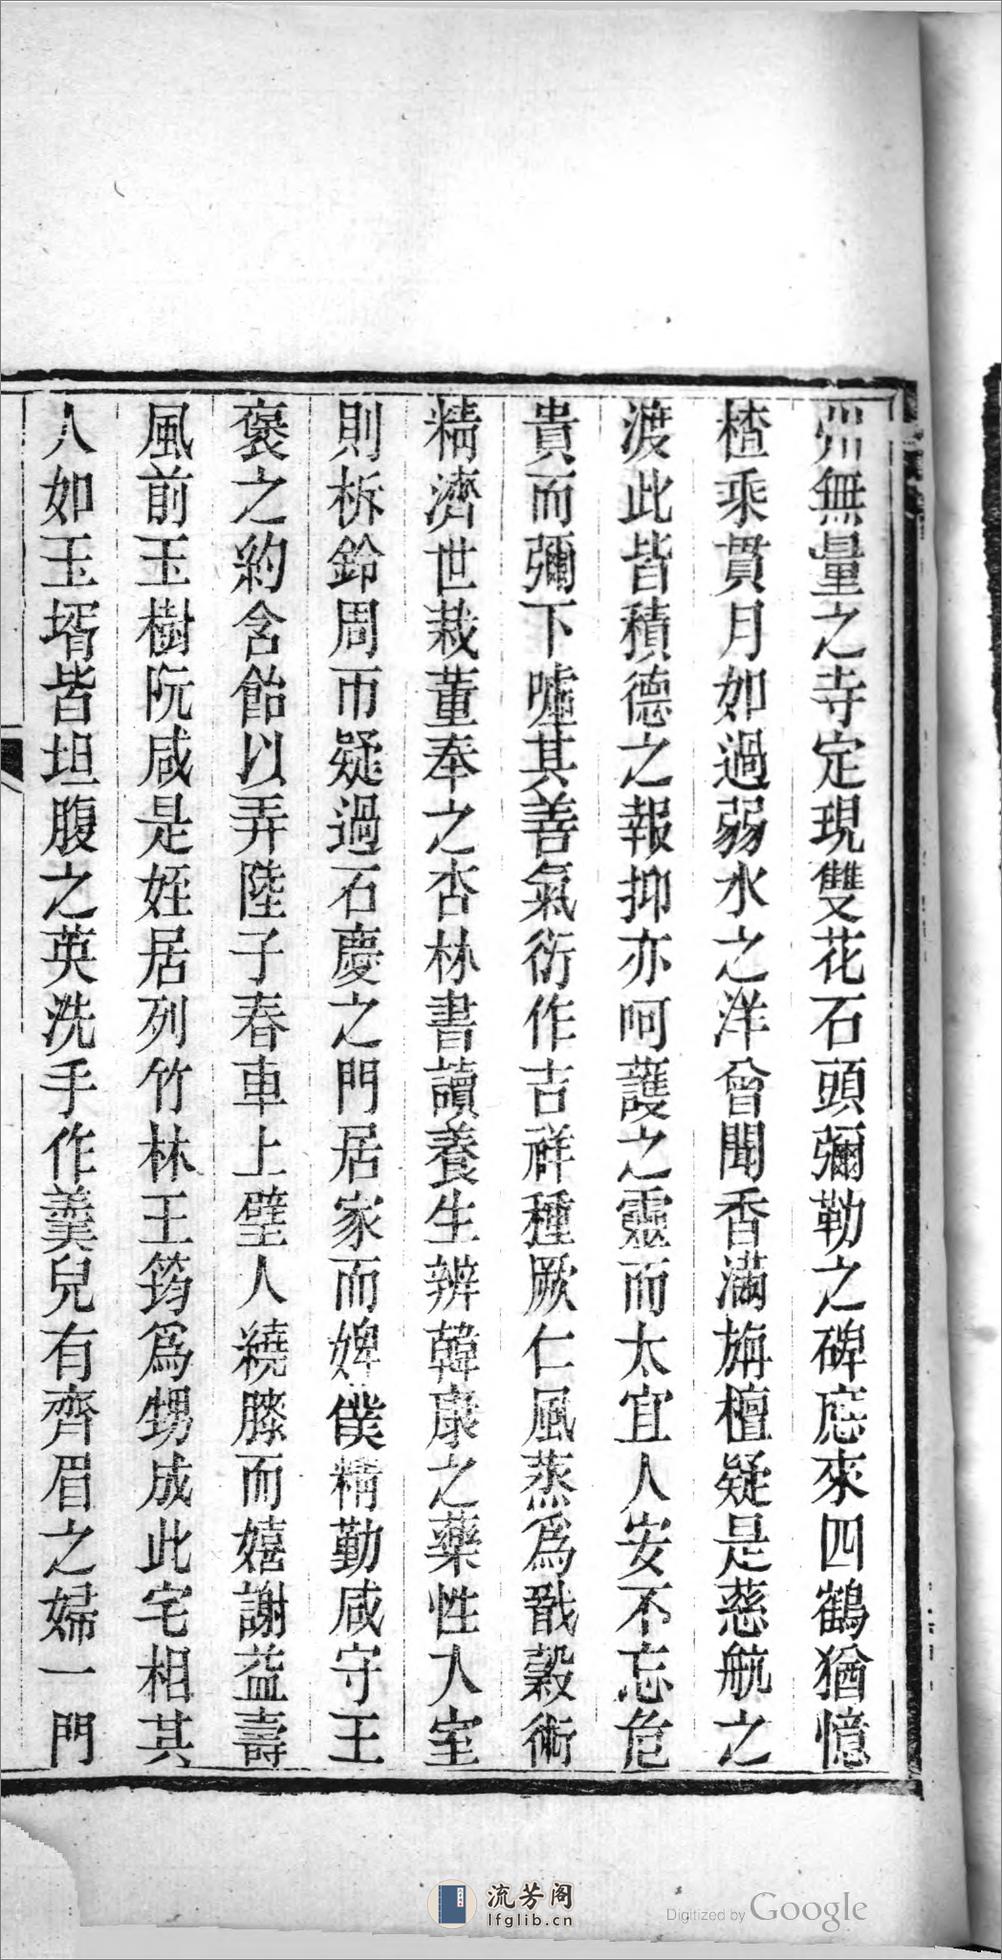 州無量之寺定現雙花石頭彌勒之碑應來四鶴猶憶
楂乘貫月如過弱水之洋曾聞香滿旃檀疑是慈航之
渡此皆積德之報抑亦呵護之靈而太宜人安不忘危
貴而彌下噓其善氣衍作吉祥種厥仁風蒸為戩穀術
精濟世栽董奉之杏林書讀養生辨韓康之藥性入室
則柝鈴周帀疑過石慶之門居家而婢僕精勤咸守王
褒之約含飴以弄陸子春車上璧人繞膝而嬉謝益壽
風前玉樹阮咸是姪居列竹林王筠爲甥成此宅相其
人如玉壻皆坦腹之英洗手作羹兒有齊眉之婦一門
流芳阁
lfglib.cn
Digitized by Google